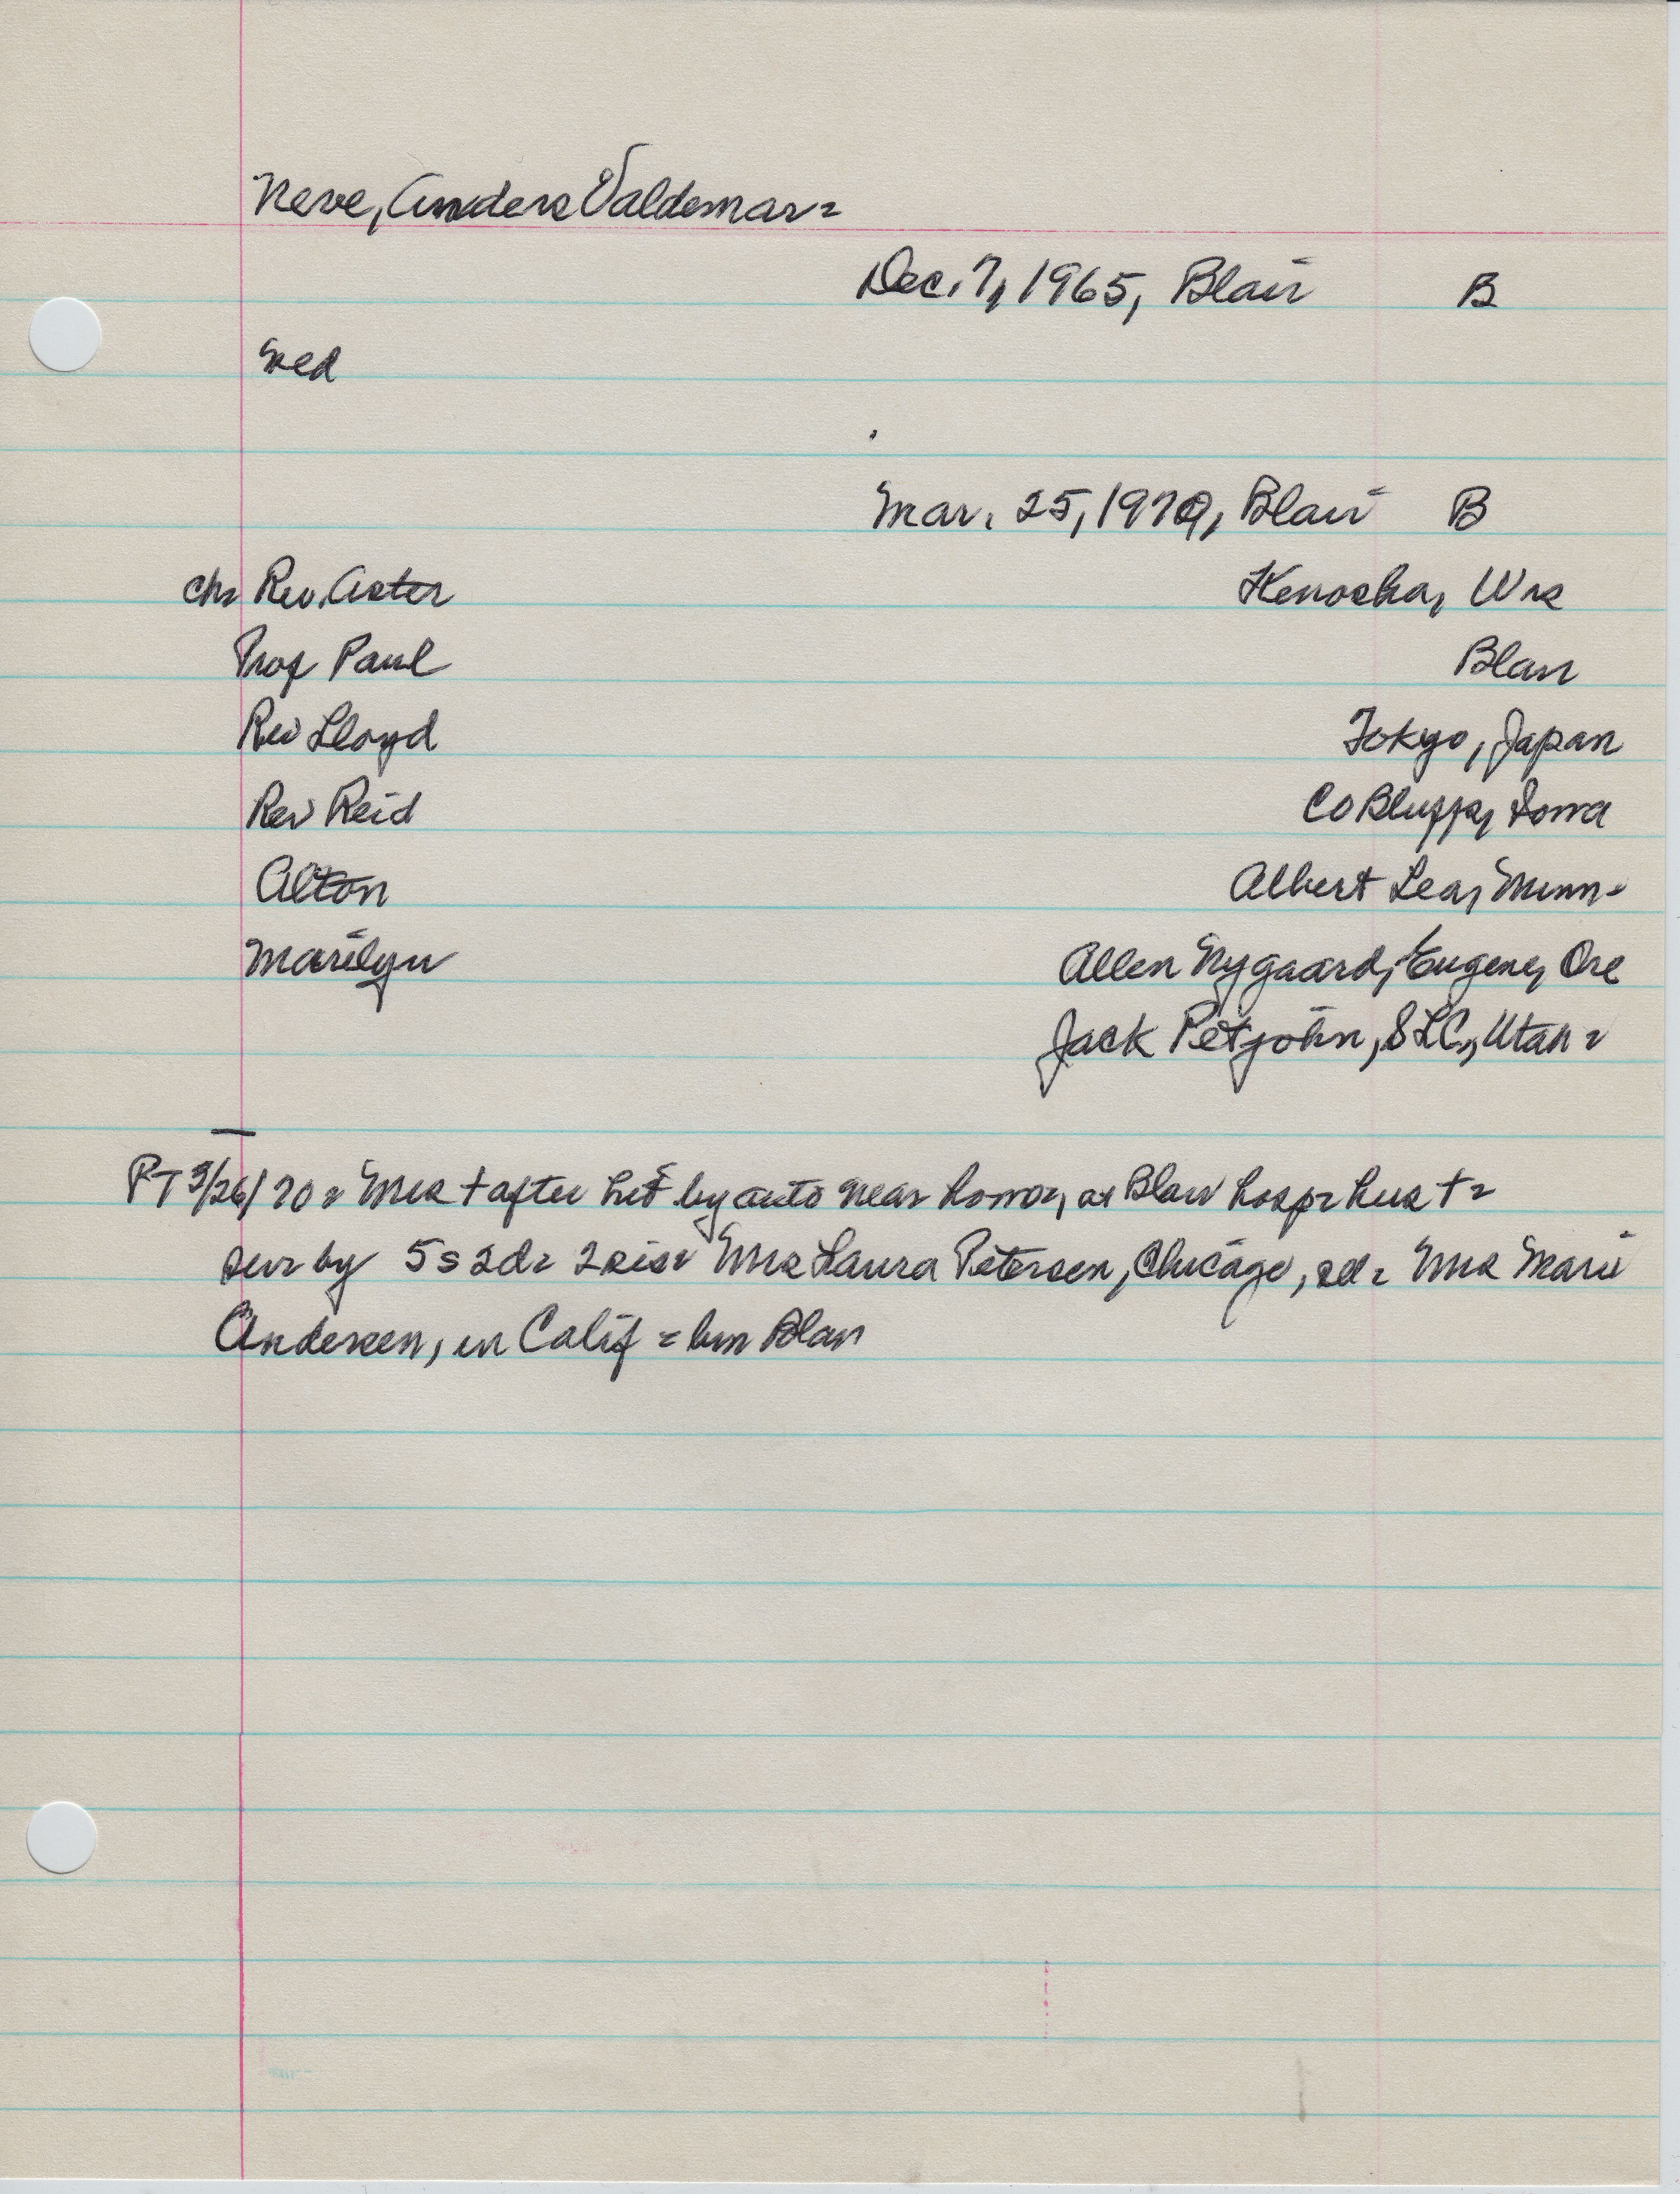 Neve, Anders Valdemar =
Dec. 7, 1965, Blair B
wed
Mar. 25, 1970, Blair B
ch = Rev. Aster Kenosha, Wis
Prof Paul Blair
Rev Lloyd Tokyo, Japan
Rev Reid Co Bluffs, Iowa
Alton Albert Lea, Minn -
Marilyn Allen Nygaard, Eugene, Ore
Jack Petjohn, SLC, Utah =
PT 3/26/70 = Mrs + after hit by auto near home, at Blair hosp = hus + =
sur by 5s 2d = 2 sis = Mrs Laura Petersen, Chicago, Ill = Mrs Marie
Andersen, in Calif = bur Blair